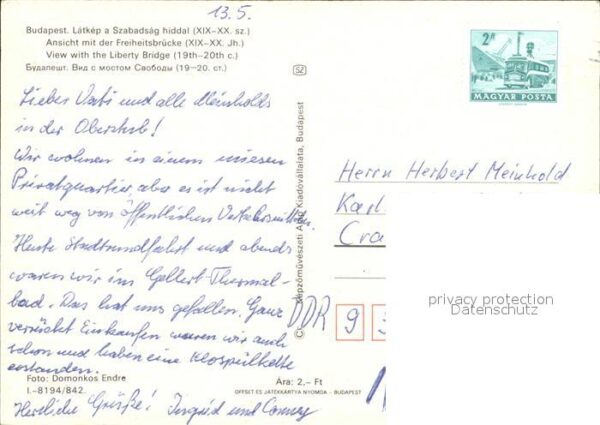 13.5.
Budapest. Látkép a Szabadság híddal (XIX–XX. sz.)
Ansicht mit der Freiheitsbrücke (XIX–XX. Jh.)
View with the Liberty Bridge (19th–20th c.)
Будапешт. Вид с мостом Свободы (19–20. ст.)
SZ
2 Ft
MAGYAR POSTA
Lieber Vati und alle Meinholds
in der Oberstub!
Wir wohnen in einem miesen
Privatquartier, aber es ist nicht
weit weg von öffentlichen Verkehrsmitteln.
Heute Stadtrundfahrt und abends
waren wir im Gellert-Thermal-
bad. Das hat uns gefallen. Ganz
verrückt Einkaufen waren wir auch
schon und haben eine Klospülkette
erstanden.
Herzliche Grüße! Ingrid und Conny
Foto: Domonkos Endre
I.–8194/842.
Ára: 2,– Ft
OFFSET ÉS JÁTÉKKÁRTYA NYOMDA – BUDAPEST
© Képzőművészeti Alap Kiadóvállalata, Budapest
Herrn Herbert Meinhold
Karl
Cra
DDR 9
privacy protection
Datenschutz